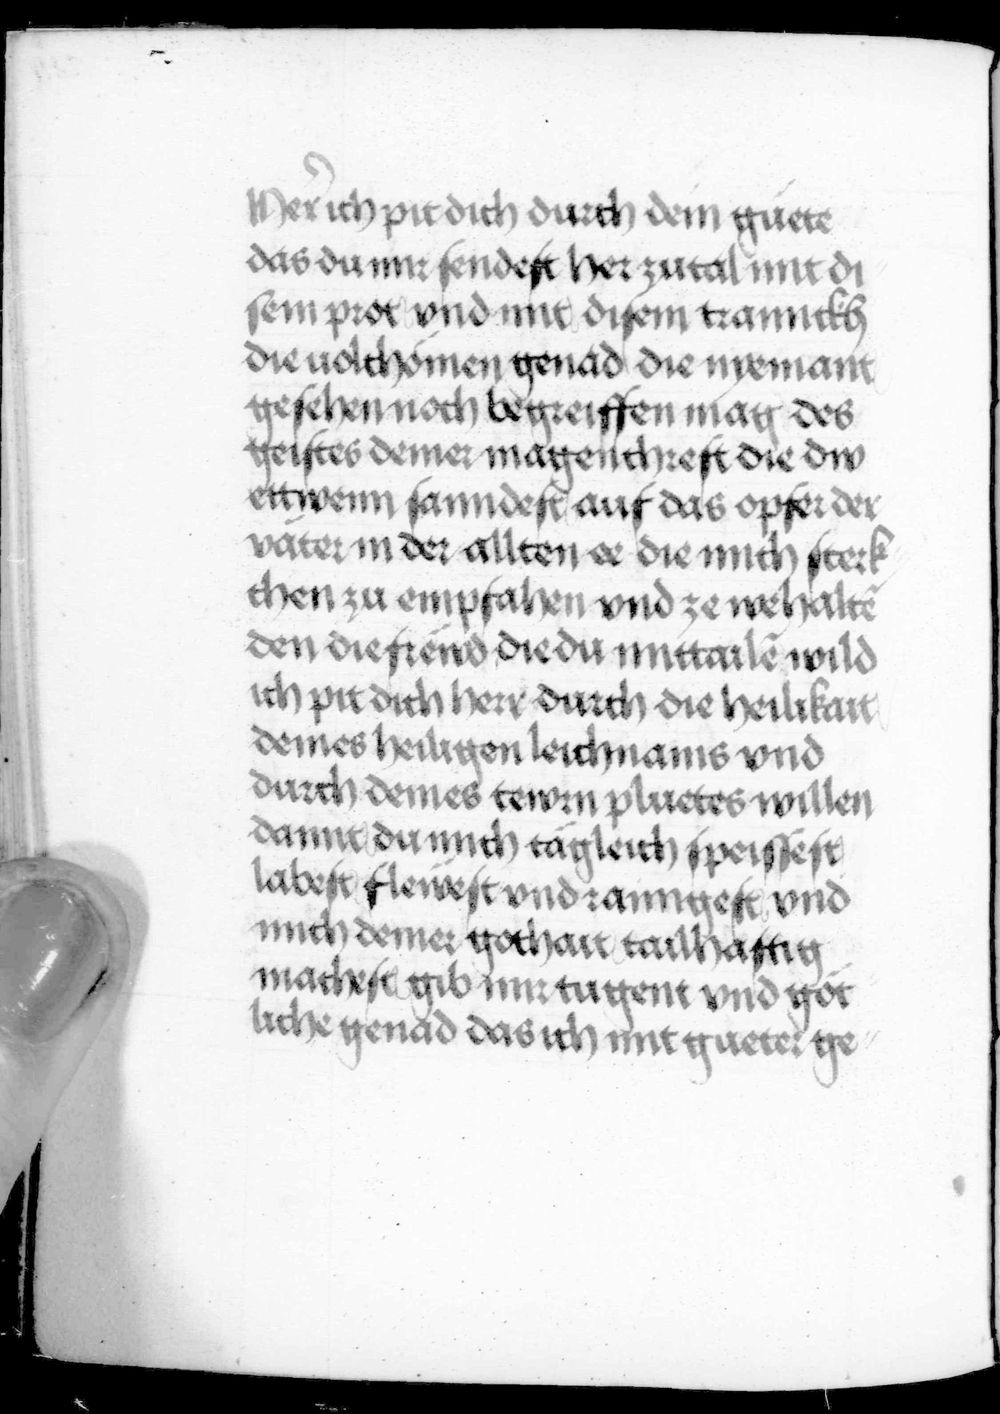 Herr ich pit dich durch dein güete
das du mir sendest her zutal mit di
sem prot vnd mit disem trannckh
die uolchömen genad die nyemant
gesehen noch begreiffen mag des
geistes deiner magenchreft die dw
ettwenn sanndest auf das opfer der
väter in der allten ee die mich sterk
chen zu empfahen vnd ze wehaltē
den die frëwd die du mittailē wild
ich pit dich herr durch die heilikait
deines heiligen leichnams vnd
durch deines tewrn pluetes willen
damit du mich tägleich speissest
labest flewest vnd rainigest vnd
mich deiner gothait tailhafftig
machest gib mir tugent vnd göt
liche genad das ich mit gueter ge